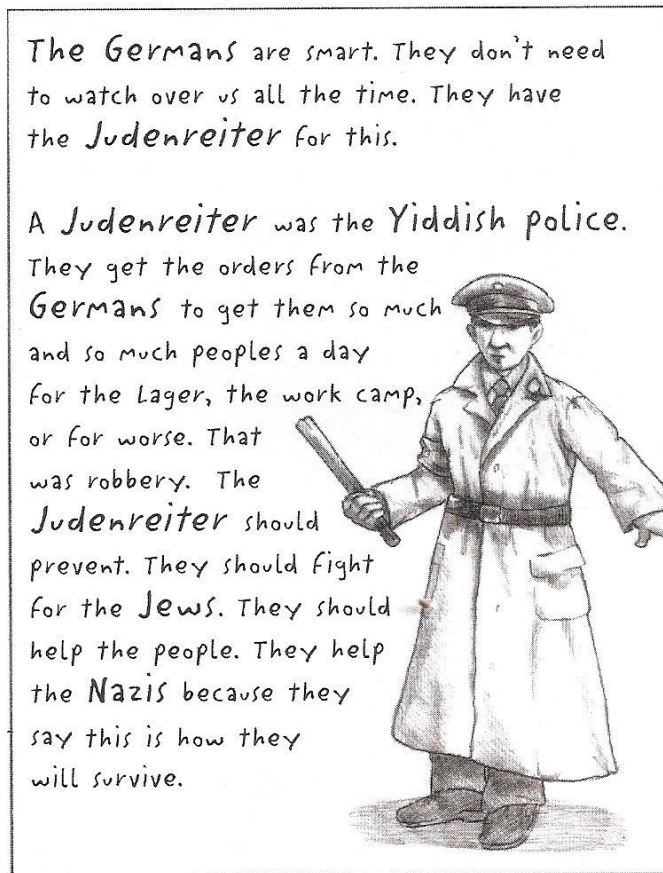 The Germans are smart. They don't need
to watch over us all the time. They have
the Judenreiter for this.
A Judenreiter was the Yiddish police.
They get the orders from the
Germans to get them so much
and so much peoples a day
for the Lager, the work camp,
or for worse. That
was robbery. The
Judenreiter should
prevent. They should fight
for the Jews. They should
help the people. They help
the Nazis because they
say this is how they
will survive.